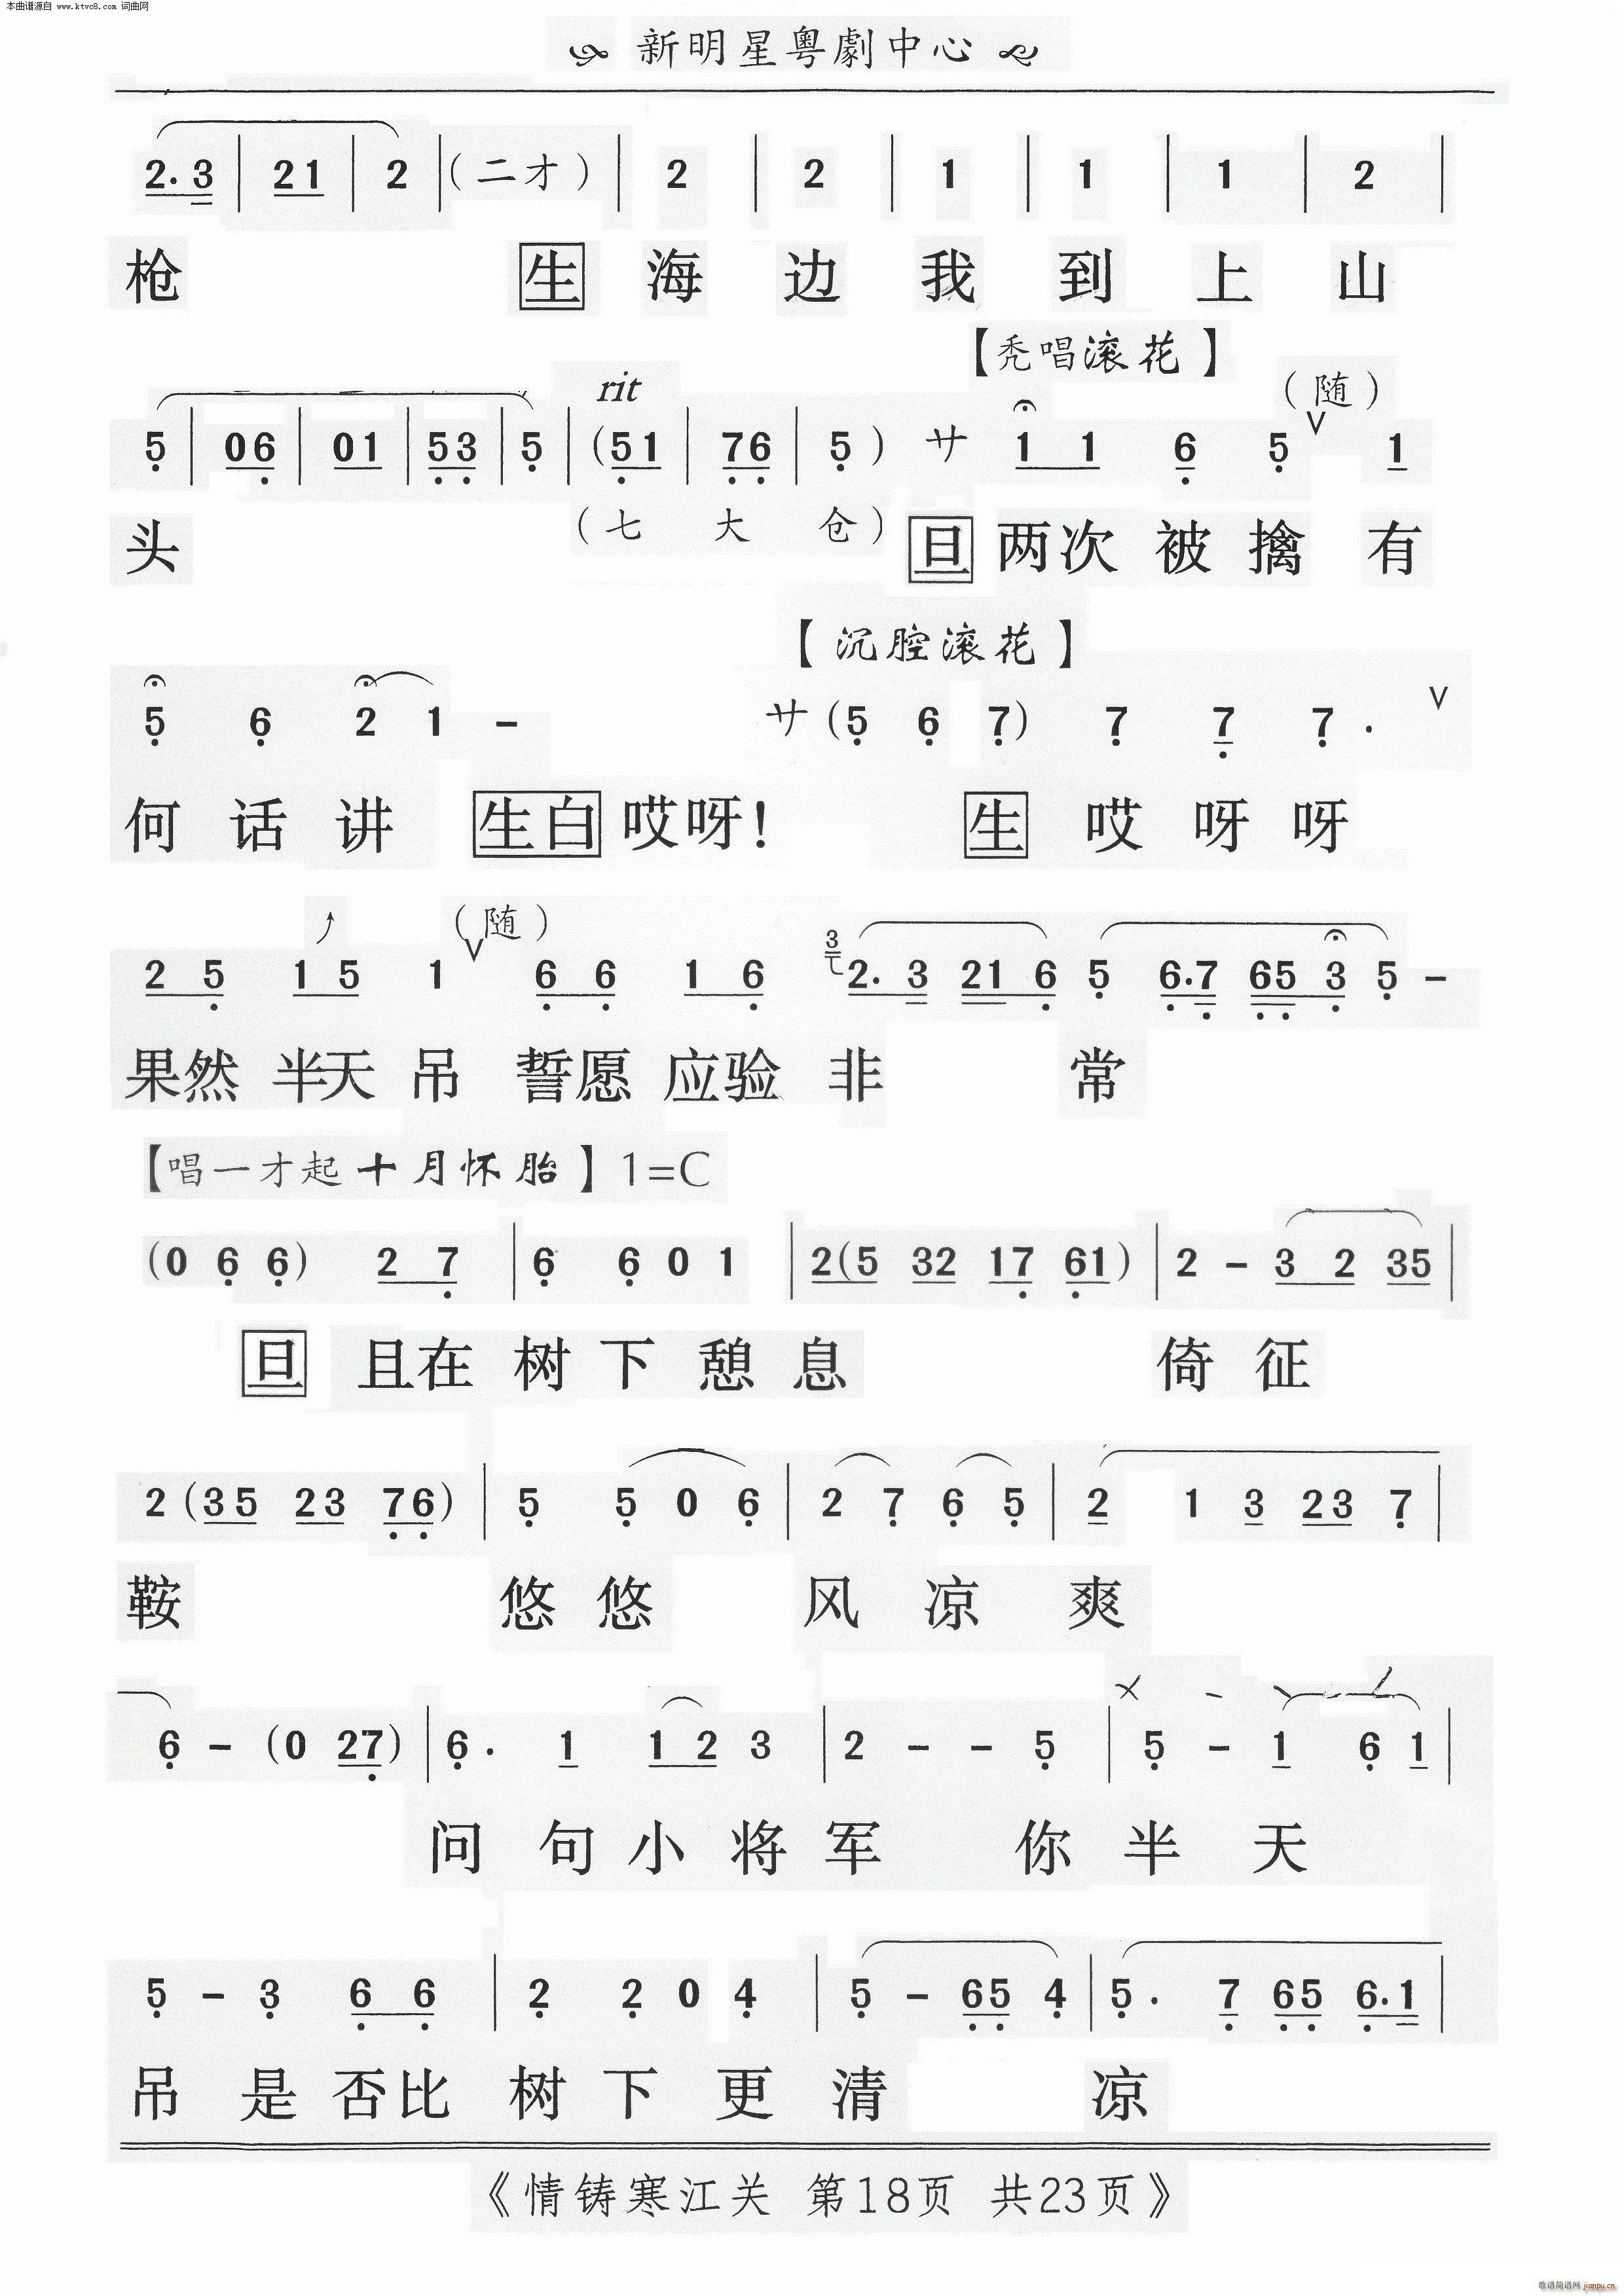 本曲谱源自 www.ktvc8.com 词曲网
新明星粤劇中心
2. 3 | 2 1 | 2 | (二才) | 2 | 2 | 1 | 1 | 1 | 2 |
枪 生 海 边 我 到 上 山
【秃唱滚花】
rit (随)
5 | 0 6 | 0 1 | 5 3 | 5 | (5 1 | 7 6 | 5) 廾 1 1 6 5 ∨ 1
(七 大 仓)
头 旦 两次 被 擒 有
【沉腔滚花】
5 6 2 1 - 廾 (5 6 7) 7 7 7 . ∨
何 话 讲 生白 哎呀! 生 哎 呀 呀
(随)
2 5 1 5 1 ∨ 6 6 1 6 3 2. 3 2 1 6 5 6. 7 6 5 3 5 -
果然 半天 吊 誓愿 应验 非 常
【唱一才起十月怀胎】1=C
(0 6 6) 2 7 | 6 6 0 1 | 2 (5 3 2 1 7 6 1) | 2 - 3 2 3 5 |
旦 且在 树 下 憩 息 倚 征
2 (3 5 2 3 7 6) | 5 5 0 6 | 2 7 6 5 | 2 1 3 2 3 7 |
鞍 悠 悠 风 凉 爽
6 - (0 2 7) | 6. 1 1 2 3 | 2 - - 5 | 5 - 1 6 1 |
问 句 小 将 军 你 半 天
5 - 3 6 6 | 2 2 0 4 | 5 - 6 5 4 | 5. 7 6 5 6. 1 |
吊 是 否比 树 下 更 清 凉
《情铸寒江关 第18页 共23页》
歌谱简谱网 jianpu.cn